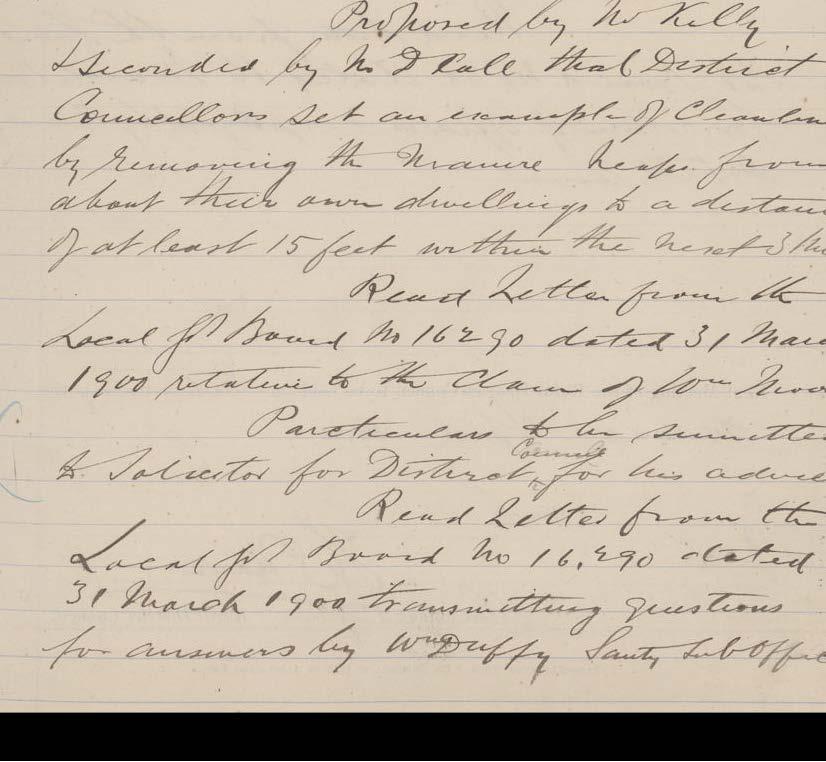 Proposed by Mr Kelly
& Seconded by Mr D Call that District
Councillors set an example of Cleanlin
by removing the Manure heaps from
about their own dwellings to a distan
of at least 15 feet within the next 3
Read Letter from the
Local Gt Board No 16290 dated 31 Mar
1900 relative to the Claim of Wm
Particulars to be summitte
Council
to Solicitor for District for his advic
Read Letter from the
Local Gt Board No 16,290 dated
31 March 1900 transmitting questions
for answers by Wm Duffy Santy Sub Offic